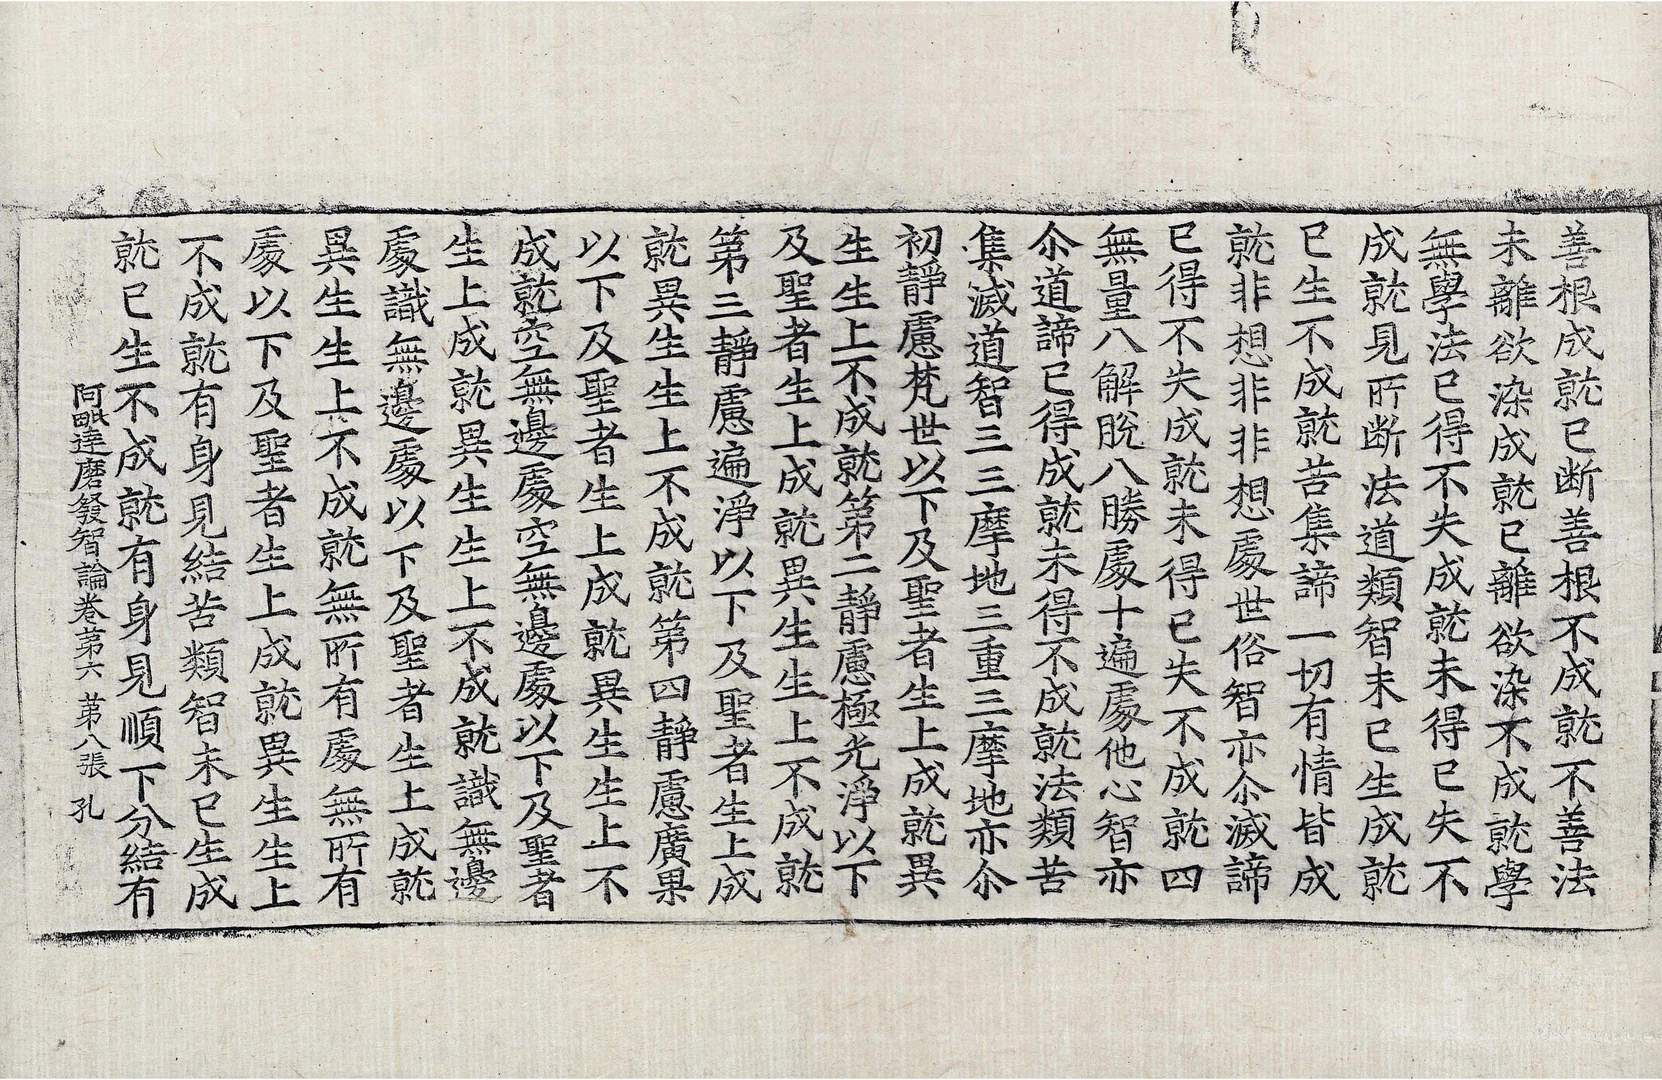 善根成就已断善根不成就不善法
未離欲染成就已離欲染不成就學
無學法已得不失成就未得已失不
成就見所断法道類智未已生成就
已生不成就苦集諦一切有情皆成
就非想非非想處世俗智亦尒滅諦
已得不失成就未得已失不成就四
無量八解脫八勝處十遍處他心智亦
尒道諦已得成就未得不成就法類苦
集滅道智三三摩地三重三摩地亦尒
初靜慮梵世以下及聖者生上成就異
生生上不成就第二靜慮極光淨以下
及聖者生上成就異生生上不成就
第三靜慮遍淨以下及聖者生上成
就異生生上不成就第四靜慮廣果
以下及聖者生上成就異生生上不
成就空無邊處空無邊處以下及聖者
生上成就異生生上不成就識無邊
處識無邊處以下及聖者生上成就
異生生上不成就無所有處無所有
處以下及聖者生上成就異生生上
不成就有身見結苦類智未已生成
就已生不成就有身見順下分結有
阿毗達磨發智論卷第六 第八張 孔